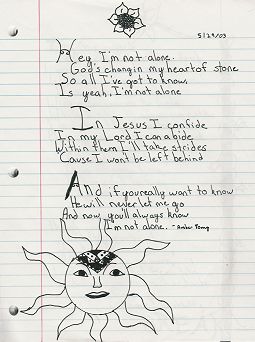 5/29/03
Hey, I'm not alone.
God's changin my heart of stone
So all I've got to know
Is yeah, I'm not alone
In Jesus I confide
In my Lord I can abide
Within them I'll take strides
'Cause I wont be left behind
And if you really want to know
He will never let me go
And now you'll always know
I'm not alone. - Amber